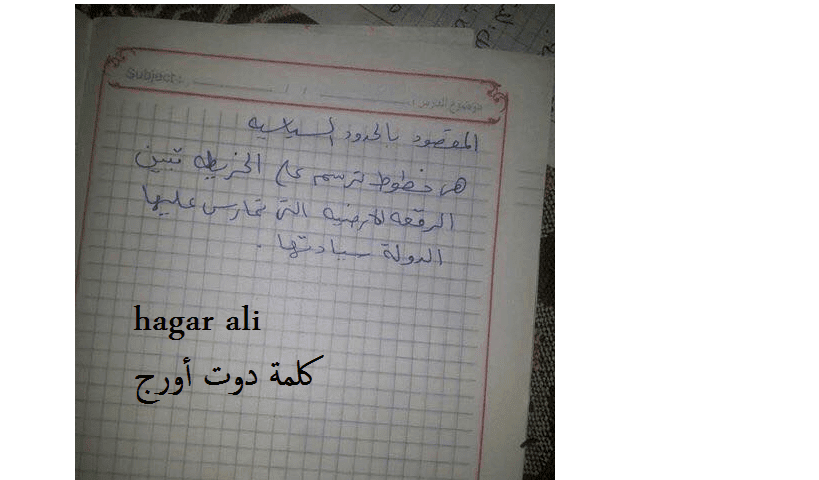 Subject:
موضوع الدرس :
المقصود بالحدود السياسيه
هى خطوط ترسم على الخريطه تبين
الرقعه الارضيه التى تمارس عليها
الدولة سيادتها .
hagar ali
كلمة دوت أورج